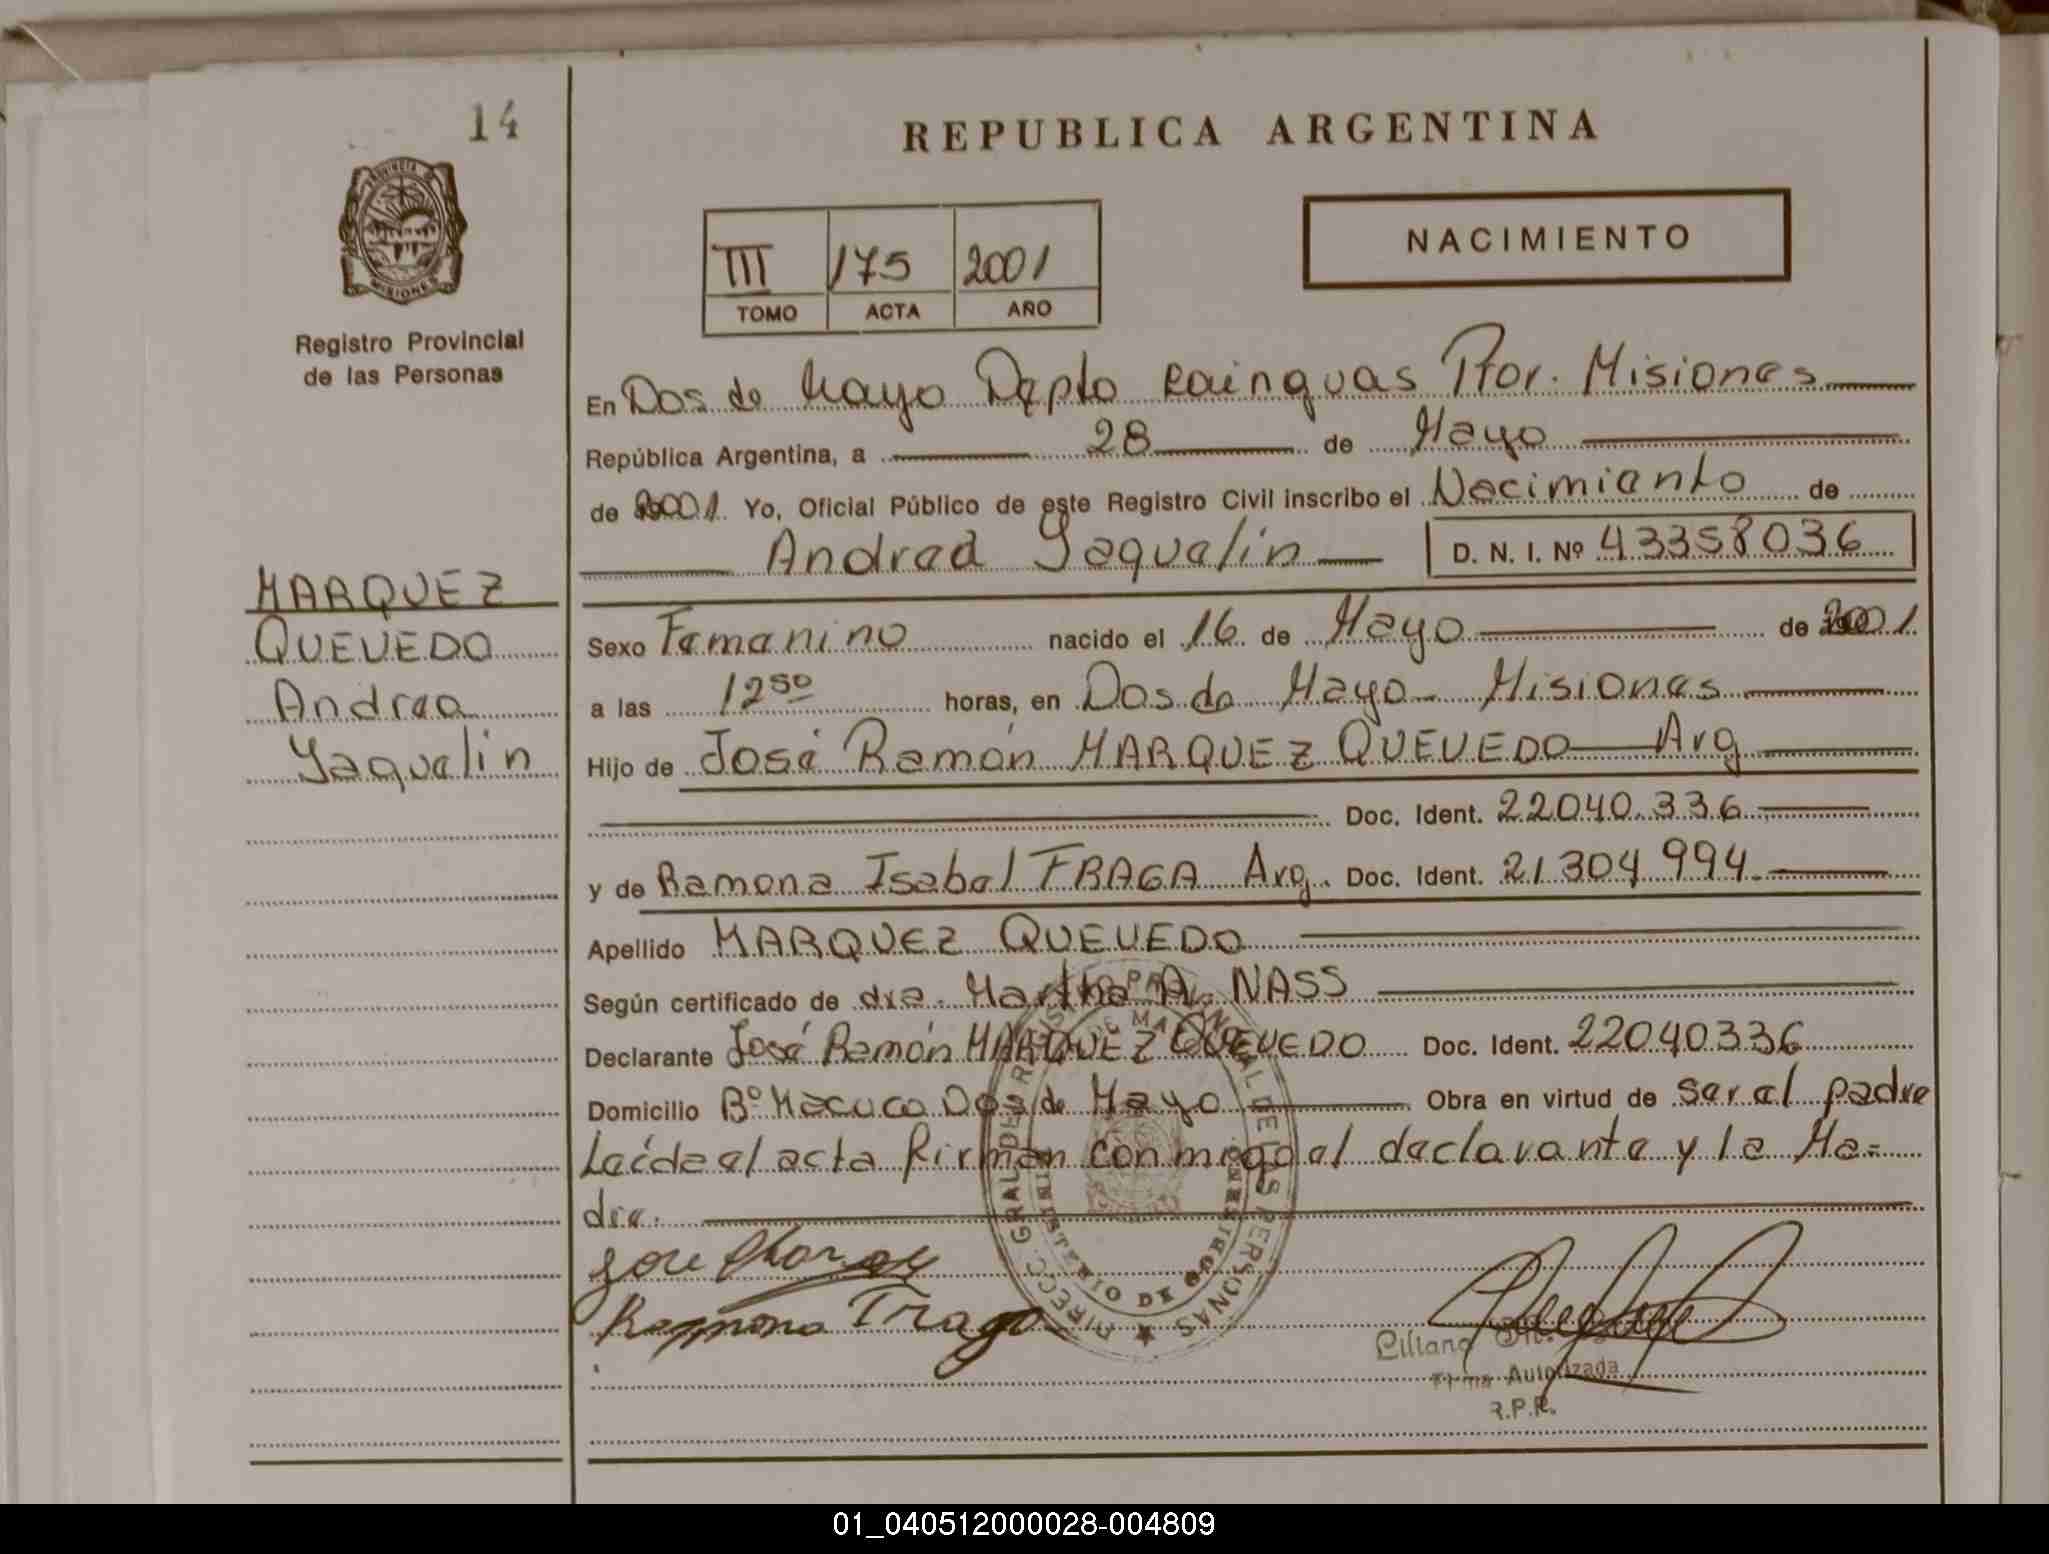 14
PROVINCIA DE
MISIONES
Registro Provincial
de las Personas
MARQUEZ
QUEVEDO
Andrea
Yaquelin
REPUBLICA ARGENTINA
III 175 2001
TOMO ACTA AÑO
NACIMIENTO
En Dos de Mayo Depto Cainguas Pror. Misiones
República Argentina, a 28 de Mayo
de 2001. Yo, Oficial Público de este Registro Civil inscribo el Nacimiento de
Andrea Yaquelin D. N. I. Nº 43358036
Sexo Femenino nacido el 16 de Mayo de 2001
a las 12 50 horas, en Dos de Mayo Misiones
Hijo de José Ramón MARQUEZ QUEVEDO Arg
Doc. Ident. 22040.336
y de Ramona Isabel FRAGA Arg. Doc. Ident. 21304994
Apellido MARQUEZ QUEVEDO
Según certificado de dra. Martha A. NASS
Declarante José Ramón MARQUEZ QUEVEDO Doc. Ident. 22040336
Domicilio Bº Macuco Dos de Mayo Obra en virtud de ser el padre
Leída el acta firman conmigo el declarante y la Ma=
dre.
DIRECC. GRAL. DEL REGISTRO PROVINCIAL DE LAS PERSONAS
MINISTERIO DE GOBIERNO
Ramona Fraga
Liliana
Firma Autorizada
R.P.P.
01_040512000028-004809